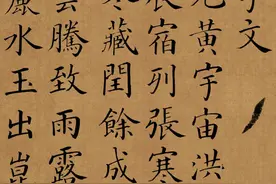 字文
元黃宇宙洪
辰宿列張寒
冬藏閏餘成
雲騰致雨露
麗水玉出崑